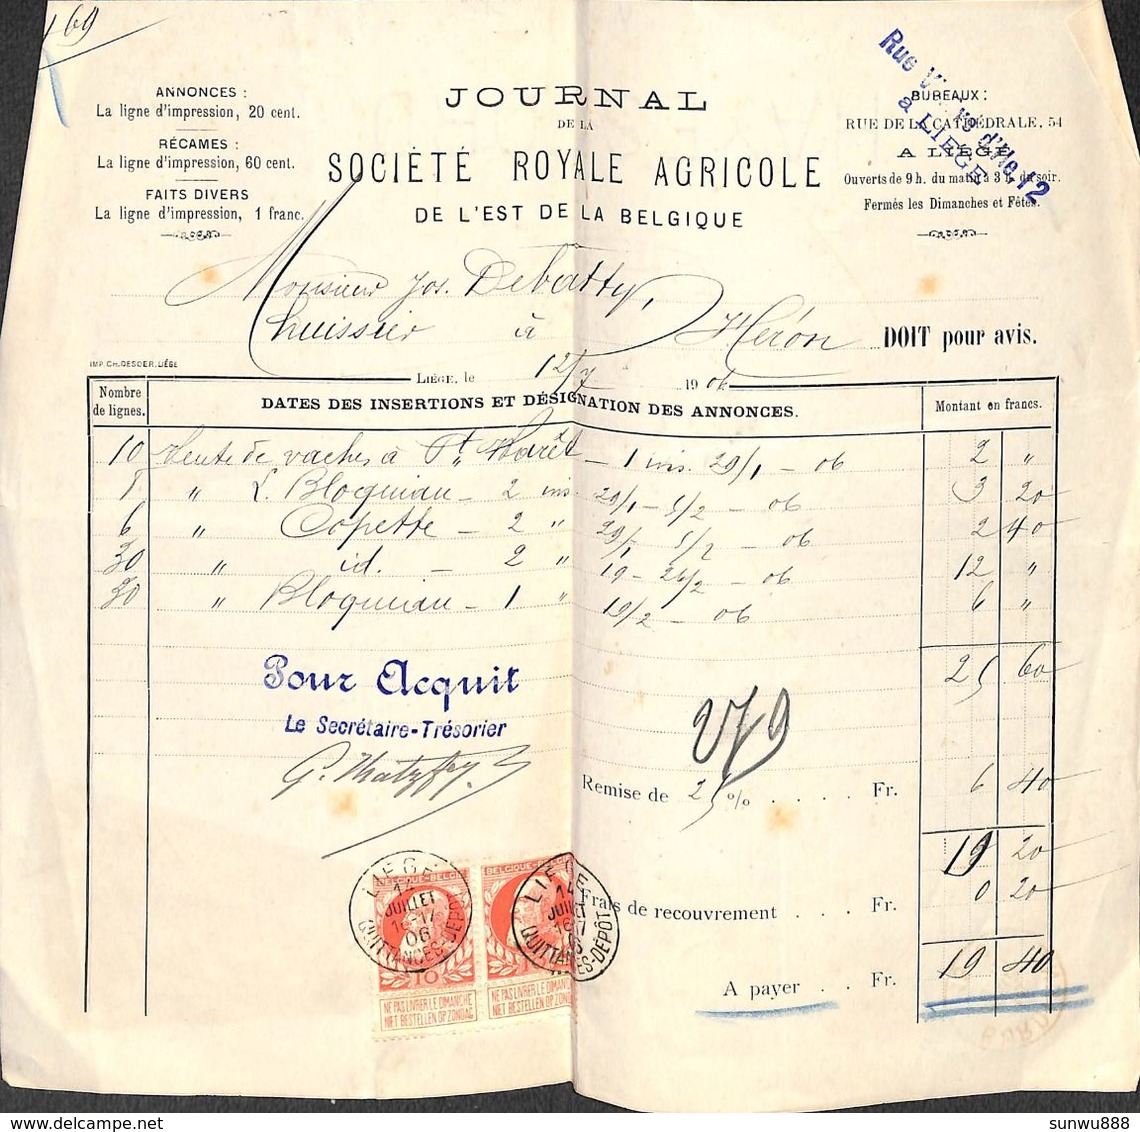 169
ANNONCES :
La ligne d'impression, 20 cent.
RÉCAMES :
La ligne d'impression, 60 cent.
FAITS DIVERS
La ligne d'impression, 1 franc.
JOURNAL
DE LA
SOCIÉTÉ ROYALE AGRICOLE
DE L'EST DE LA BELGIQUE
BUREAUX :
RUE DE LA CATHÉDRALE, 54
A LIÉGE
Ouverts de 9 h. du matin à 3 h. du soir.
Fermés les Dimanches et Fêtes.
Rue d'Ile, 12
à LIEGE
Monsieur Jos. Debatty,
huissier à Héron DOIT pour avis.
IMP. CH. DESOER. LIÉGE
LIÉGE, le 12/7 1906
Nombre de lignes. DATES DES INSERTIONS ET DÉSIGNATION DES ANNONCES. Montant en francs.
10 Vente de vaches à St. Marêt - 1 ins. 29/1 - 06 2 "
8 " L. Bloquiau - 2 ins. 29/1 - 5/2 - 06 3 20
6 " Copette - 2 " 29/1 5/2 - 06 2 40
30 " id. - 2 " 19 - 26/2 - 06 12 "
30 " Bloquiau - 1 " 19/2 - 06 6 "
25 60
Pour Acquit
Le Secrétaire-Trésorier
279
Remise de 25 % . . . . Fr. 6 40
19 20
Frais de recouvrement . . . Fr. 0 20
A payer . . Fr. 19 40
LIEGE
14
JUILLET
16-17
06
QUITTANCES-DÉPÔT
LIEGE
14
JUILLET
16-17
06
QUITTANCES-DÉPÔT
BELGIQUE-BELGIË
10
NE PAS LIVRER LE DIMANCHE
NIET BESTELLEN OP ZONDAG
BELGIQUE-BELGIË
10
NE PAS LIVRER LE DIMANCHE
NIET BESTELLEN OP ZONDAG
sunwu888